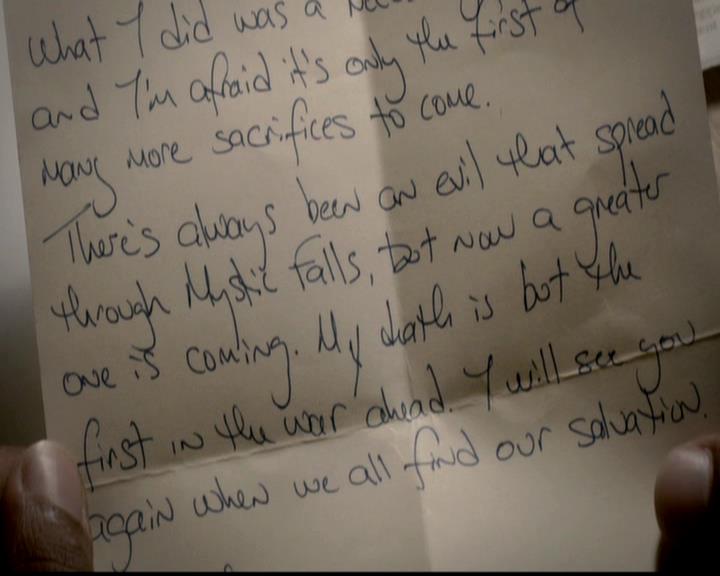 What I did was a
and I'm afraid it's only the first of
many more sacrifices to come.
There's always been an evil that spread
through Mystic Falls, but now a greater
one is coming. My death is but the
first in the war ahead. I will see you
again when we all find our salvation.